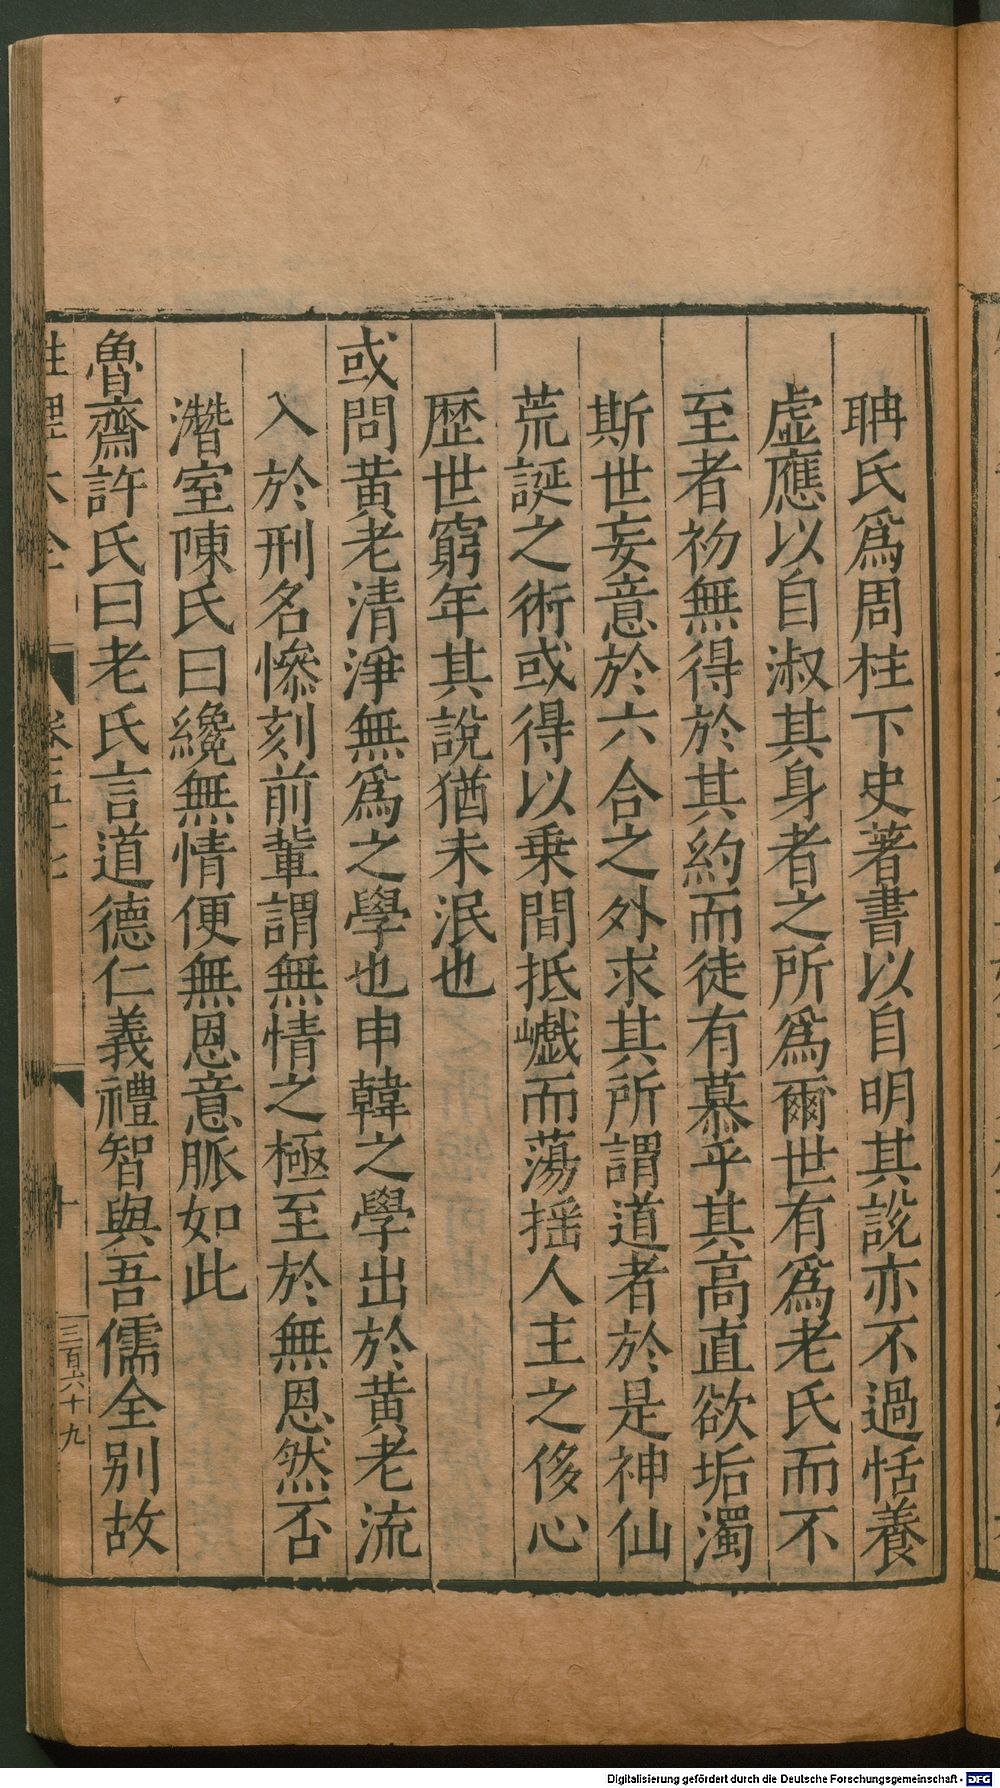 聃氏爲周柱下史著書以自明其說亦不過恬養
虛應以自淑其身者之所爲爾世有爲老氏而不
至者初無得於其約而徒有慕乎其高直欲垢濁
斯世妄意於六合之外求其所謂道者於是神仙
荒誕之術或得以乗間抵巇而蕩揺人主之侈心
歴世窮年其說猶未泯也
或問黄老清淨無爲之學也申韓之學出於黄老流
入於刑名慘刻前軰謂無情之極至於無恩然否
潛室陳氏曰纔無情便無恩意脈如此
魯齋許氏曰老氏言道德仁義禮智與吾儒全别故
性理大全 卷五十七 十 三百六十九
Digitalisierung gefördert durch die Deutsche Forschungsgemeinschaft - DFG